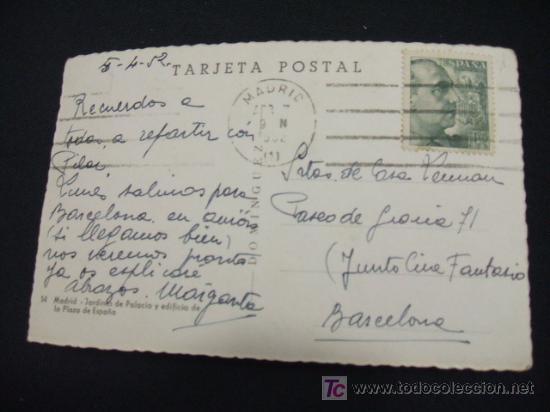 5-4-52.
TARJETA POSTAL
MADRID
ESPAÑA
Recuerdos a
todos, a repartir con
Pilar
Lunes salimos para
Barcelona en avión
(si llegamos bien)
nos veremos pronto
ya os explicaré
abrazos. Margarita
DOMINGUEZ
Srtas. de Casa
Paseo de Gracia 71
(Junto Cine Fantasio
Barcelona
54 Madrid - Jardines de Palacio y edificio de
la Plaza de España
TC todocoleccion.net